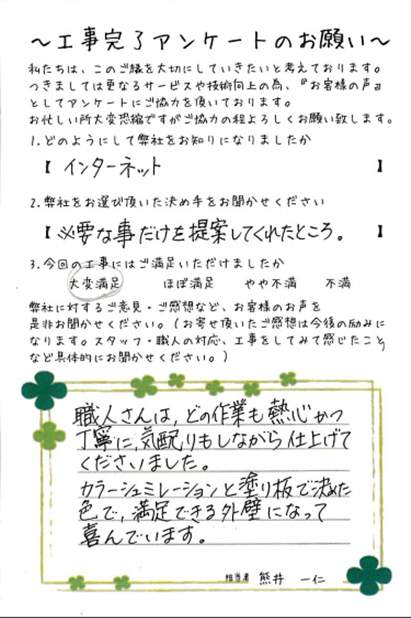 ～工事完了アンケートのお願い～
私たちは、このご縁を大切にしていきたいと考えております。
つきましては更なるサービスや技術向上の為、『お客様の声』
としてアンケートにご協力を頂いております。
お忙しい所大変恐縮ですがご協力の程よろしくお願い致します。
1.どのようにして弊社をお知りになりましたか
【 インターネット 】
2.弊社をお選び頂いた決め手をお聞かせください
【 必要な事だけを提案してくれたところ。 】
3.今回の工事にはご満足いただけましたか
大変満足 ほぼ満足 やや不満 不満
弊社に対するご意見・ご感想など、お客様のお声を
是非お聞かせください。(お寄せ頂いたご感想は今後の励みに
なります。スタッフ・職人の対応、工事をしてみて感じたこと
など具体的にお聞かせください。)
職人さんは、どの作業も熱心かつ
丁寧に、気配りもしながら仕上げて
くださいました。
カラーシュミレーションと塗り板で決めた
色で、満足できる外壁になって
喜んでいます。
担当者 熊井 一仁